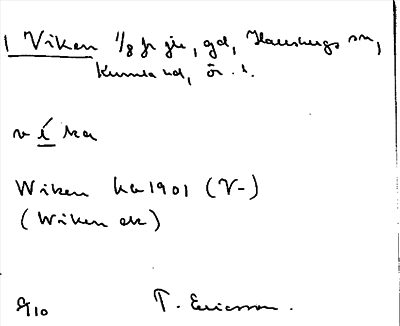 1 Viken 1/8 fr gd, Hallsbergs sn,
Kumla hd, ör. l.
víka
Wiken ka 1901 (V-)
(Wiken ek)
T. Ericsson.